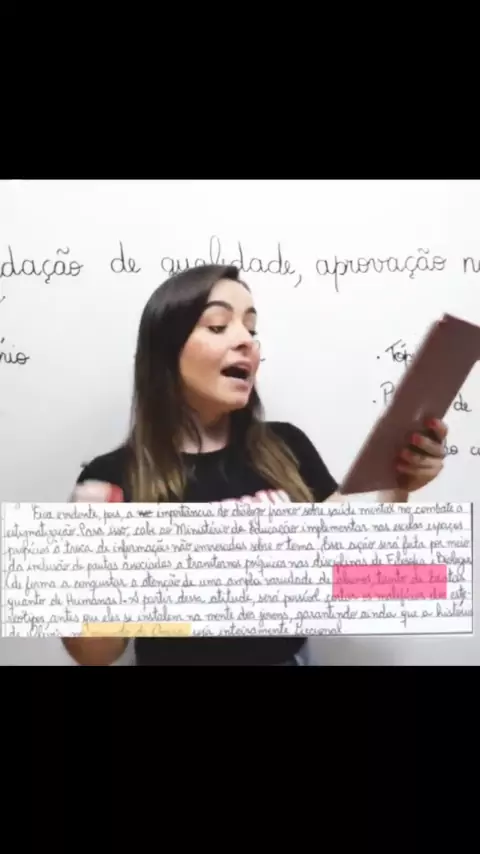 dação de qualidade, aprovação n
nio
Tóp
P
de
Fica evidente, pois, a importância do diálogo franco sobre saúde mental no combate à
estigmatização. Para isso, cabe ao Ministério da Educação implementar nas escolas espaços
propícios à troca de informações não enviesadas sobre o tema. Essa ação será feita por meio
da inclusão de pautas associadas a transtornos psíquicos nas disciplinas de Filosofia e Biologia
(de forma a angustar a atenção de uma ampla variedade de alunos, tanto de Exatas
quanto de Humanas). A partir dessa atitude, será possível conter os malefícios do este
reótipos antes que eles se instalem na mente dos jovens, garantindo ainda que a história
seja inteiramente ficcional